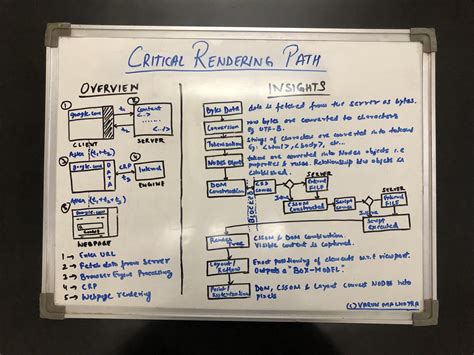 CRITICAL RENDERING PATH
OVERVIEW
1
2
google.com
t1
t2
Content
<..>
<../>
CLIENT
SERVER
After (t1+t2)
3
4
google.com
DATA
CRP
Internal
ENGINE
5
google.com
WEBPAGE
1 → Enter URL
2 → Fetch data from Server
3 → Browser Engine Processing
4 → CRP
5 → Webpage rendering
INSIGHTS
Bytes Data
data is fetched from the server as bytes.
Conversion
raw bytes are converted to characters
Eg UTF-8.
Tokenization
strings of characters are converted into tokens
Eg: <html>, <body>, etc..
NODES Object
tokens are converted into Nodes objects i.e
properties & rules. Relationship b/w objects is
established.
DOM
Construction
BLOCKED
CSS
comes
SERVER
External
FILE
CSSOM
Constructed
Script
comes
SERVER
External
FILE
Script
executed
Render
Tree
CSSOM & DOM combination.
Visible content is captured.
Layout/
Reflow
Exact positioning of elements w.r.t viewport.
Outputs a "BOX-MODEL".
Paint/
Rasterization
DOM, CSSOM & Layout convert NODES into
pixels
(c) VARUN MALHOTRA